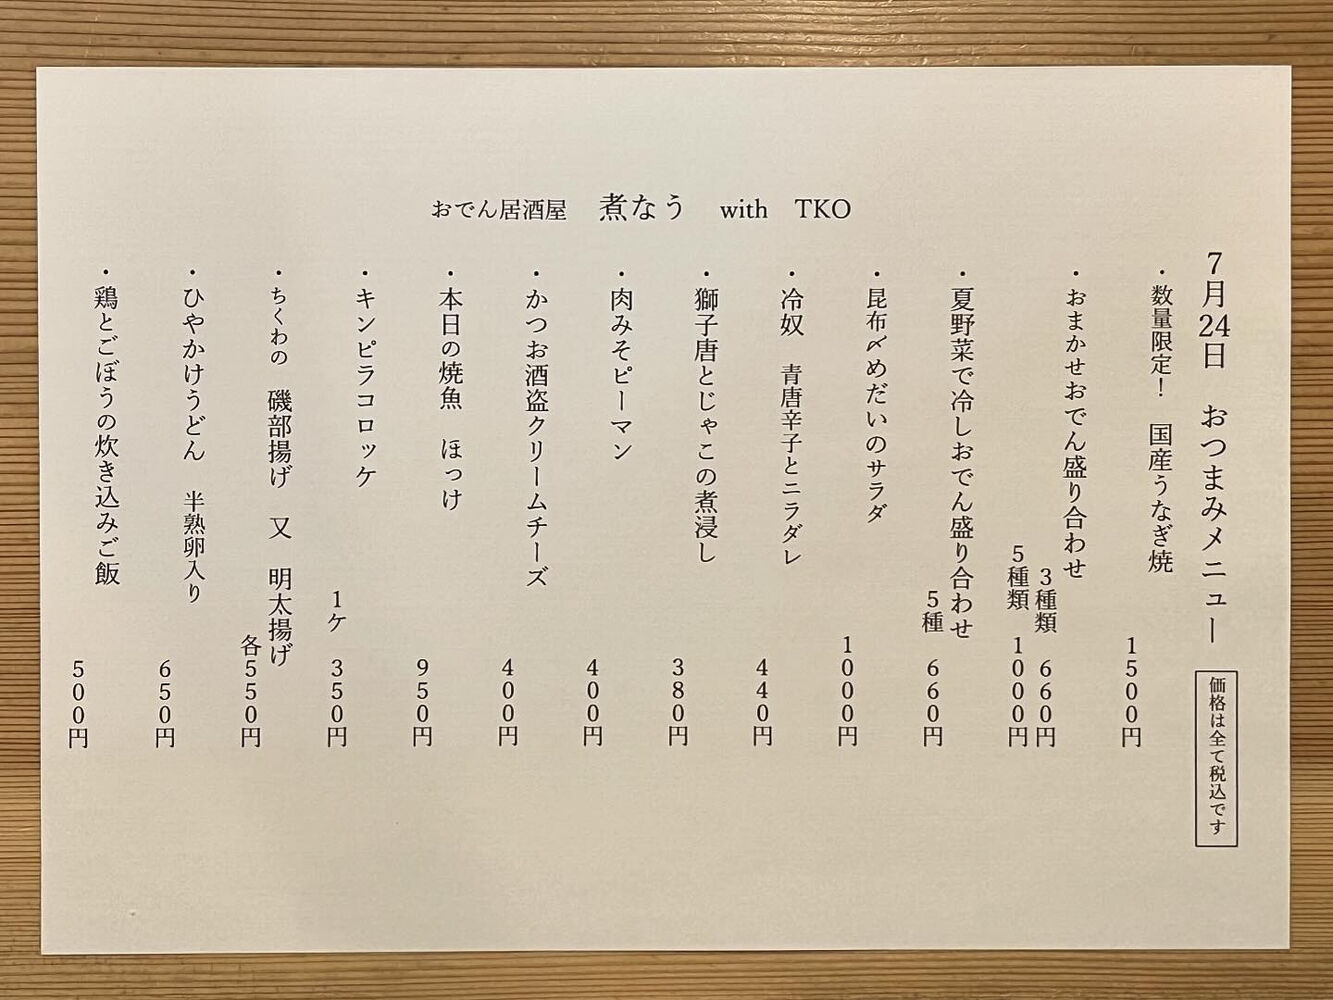 おでん居酒屋　煮なう　with　TKO
7月24日　おつまみメニュー
価格は全て税込です
・数量限定！　国産うなぎ焼
1500円
・おまかせおでん盛り合わせ
3種類　660円
5種類　1000円
・夏野菜で冷しおでん盛り合わせ
5種　660円
・昆布〆めだいのサラダ
1000円
・冷奴　青唐辛子とニラダレ
440円
・獅子唐とじゃこの煮浸し
380円
・肉みそピーマン
400円
・かつお酒盗クリームチーズ
400円
・本日の焼魚　ほっけ
950円
・キンピラコロッケ
1ケ　350円
・ちくわの　磯部揚げ　又　明太揚げ
各550円
・ひやかけうどん　半熟卵入り
650円
・鶏とごぼうの炊き込みご飯
500円